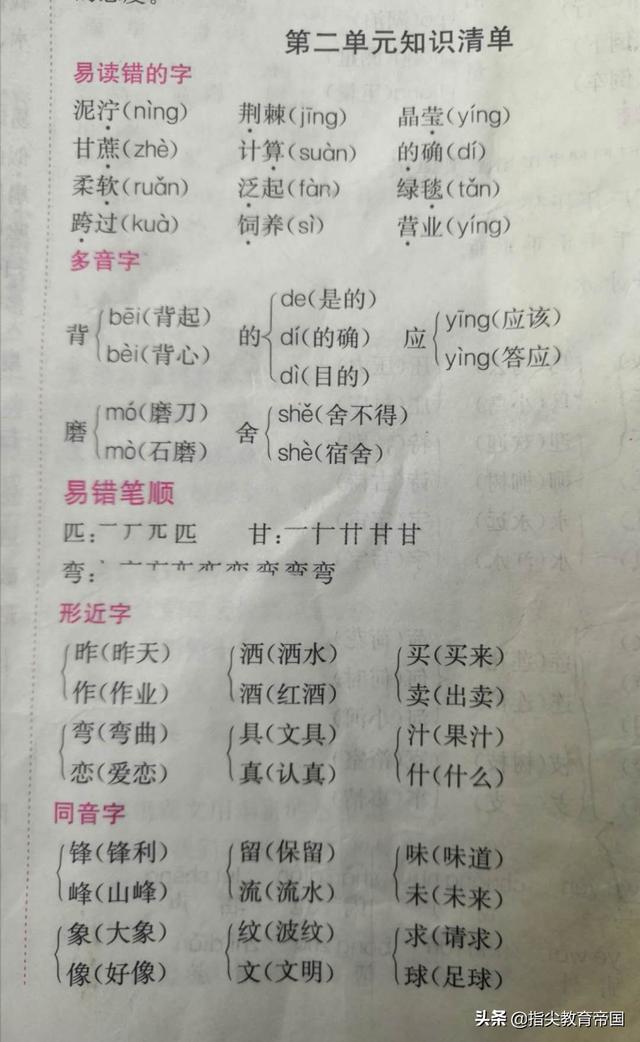 第二单元知识清单
易读错的字
泥泞(nìng) 荆棘(jīng) 晶莹(yíng)
甘蔗(zhè) 计算(suàn) 的确(dí)
柔软(ruǎn) 泛起(fàn) 绿毯(tǎn)
跨过(kuà) 饲养(sì) 营业(yíng)
多音字
背 bēi(背起) bèi(背心) 的 de(是的) dí(的确) dì(目的) 应 yīng(应该) yìng(答应)
磨 mó(磨刀) mò(石磨) 舍 shě(舍不得) shè(宿舍)
易错笔顺
匹:一 丆 兀 匹 甘:一 十 廿 甘 甘
弯:
形近字
昨(昨天) 洒(洒水) 买(买来)
作(作业) 酒(红酒) 卖(出卖)
弯(弯曲) 具(文具) 汁(果汁)
恋(爱恋) 真(认真) 什(什么)
同音字
锋(锋利) 留(保留) 味(味道)
峰(山峰) 流(流水) 未(未来)
象(大象) 纹(波纹) 求(请求)
像(好像) 文(文明) 球(足球)
头条 @指尖教育帝国